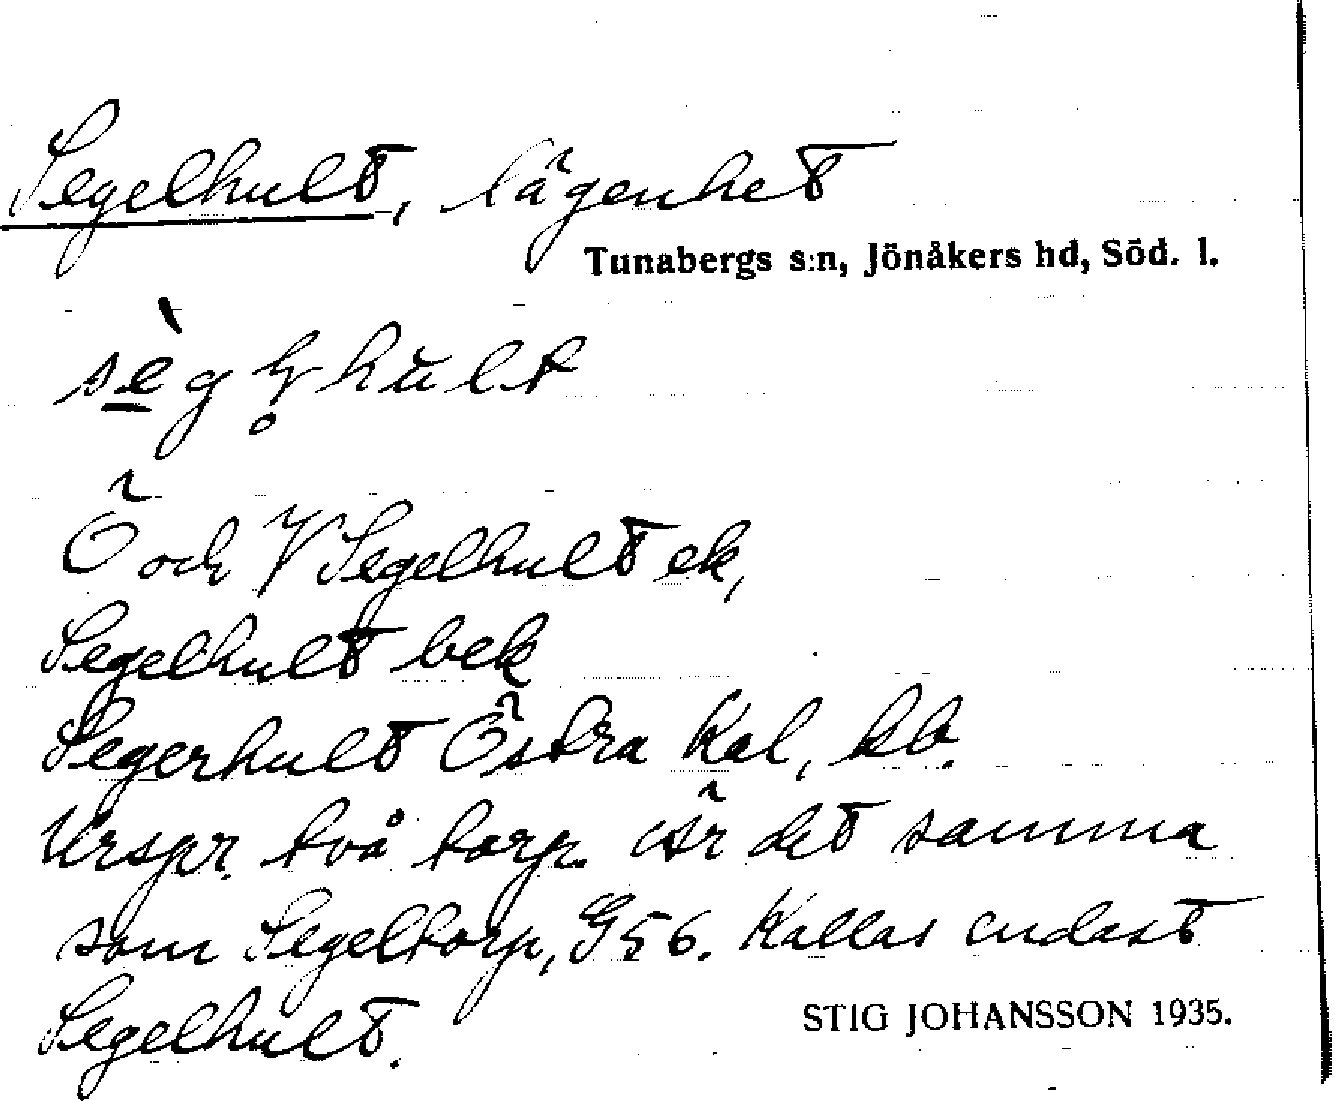 Segelhult, lägenhet
Tunabergs s:n, Jönåkers hd, Söd. l.
Ö och V Segelhult ek,
Segelhult bek
Segerhult Östra Kal, kb.
Urspr. två torp. Är det samma
som Segeltorp, G56. Kallas endast
Segelhult.
STIG JOHANSSON 1935.